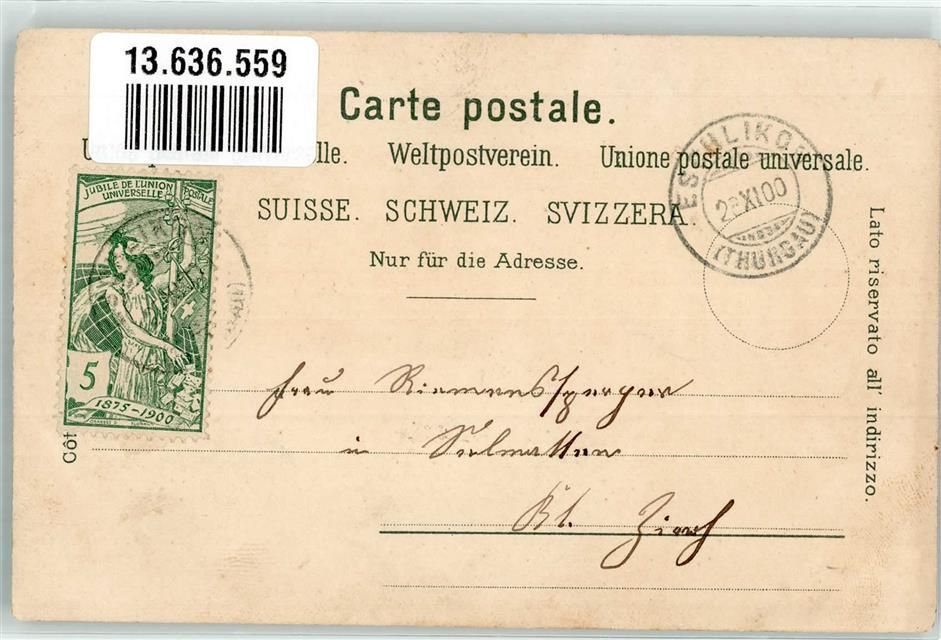 13.636.559
Carte postale.
Weltpostverein. Unione postale universale.
SUISSE. SCHWEIZ. SVIZZERA.
Nur für die Adresse.
JUBILÉ DE L'UNION POSTALE
UNIVERSELLE
5
1875-1900
ESCHLIKON
XI 00
(THURGAU)
Lato riservato all' indirizzo.
Côt
Frau
in
Kt. Zürich